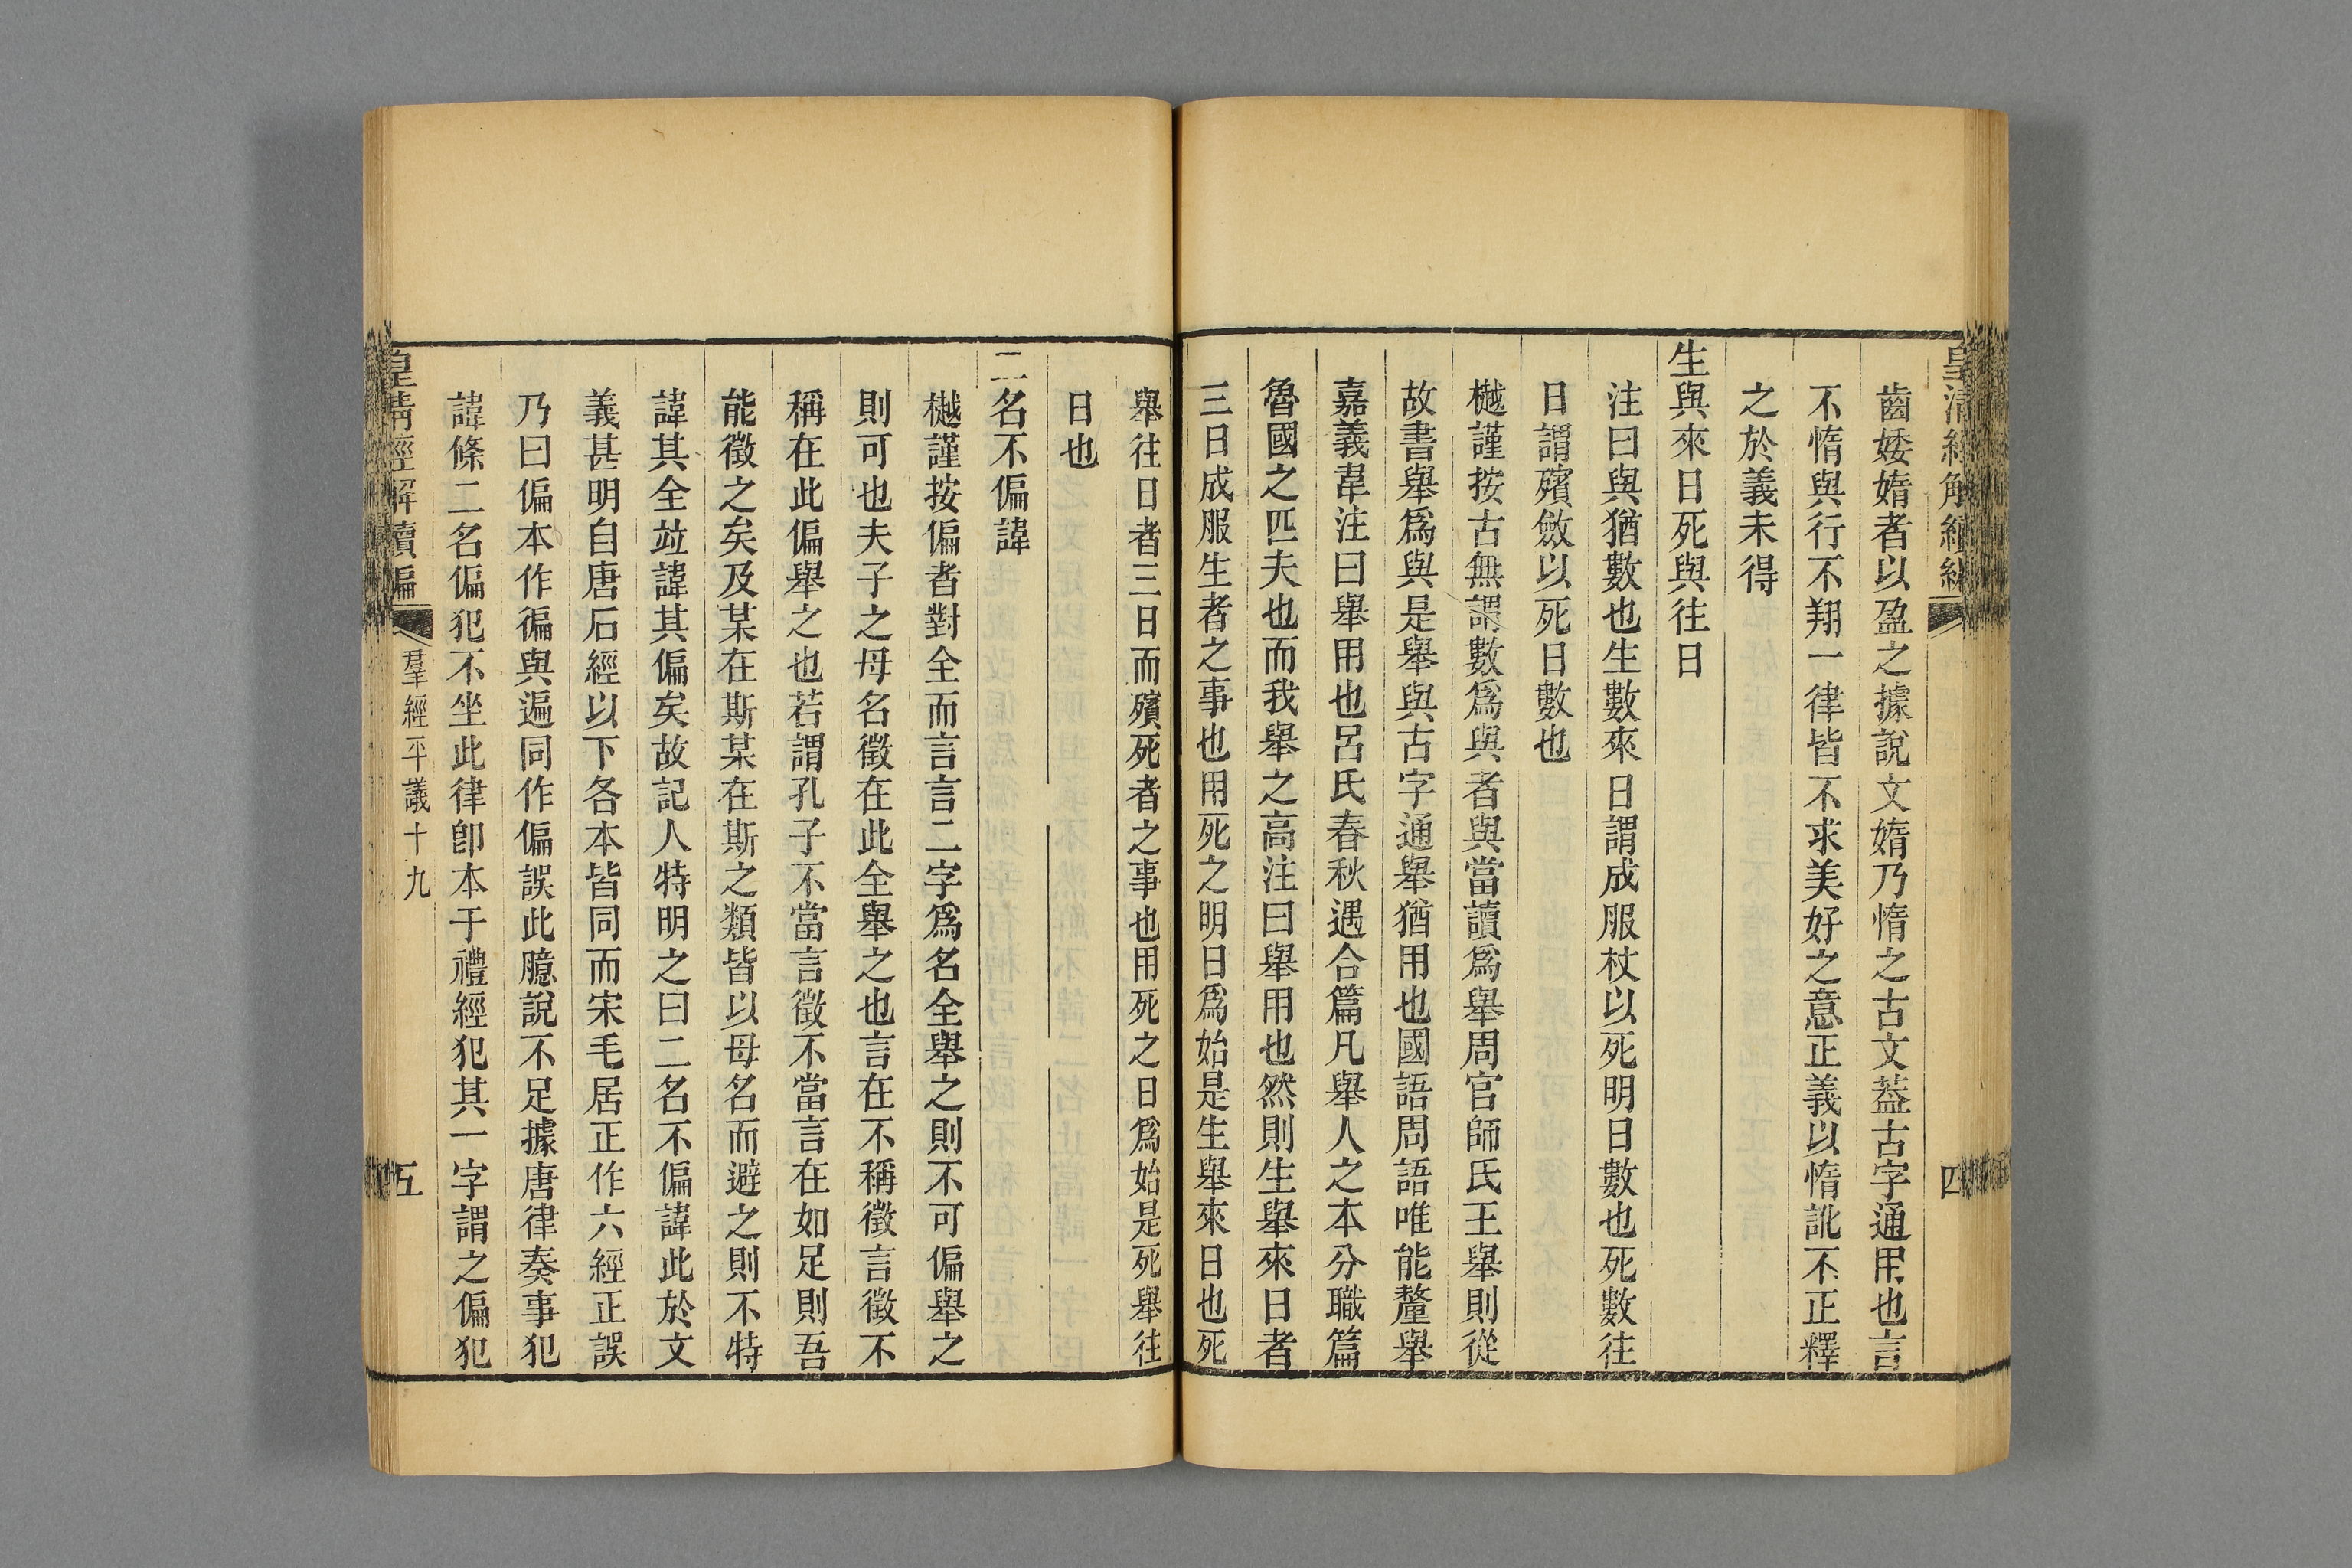 皇清經解續編
四
齒婑媠者以盈之據說文媠乃惰之古文葢古字通用也言
不惰與行不翔一律皆不求美好之意正義以惰訛不正釋
之於義未得
生與來日死與往日
注曰與猶數也生數來日謂成服杖以死明日數也死數往
日謂殯斂以死日數也
樾謹按古無謂數爲與者與當讀爲舉周官師氏王舉則從
故書舉爲與是舉與古字通舉猶用也國語周語唯能釐舉
嘉義韋注曰舉用也呂氏春秋遇合篇凡舉人之本分職篇
魯國之匹夫也而我舉之高注曰舉用也然則生舉來日者
三日成服生者之事也用死之明日爲始是生舉來日也死
舉往日者三日而殯死者之事也用死之日爲始是死舉往
日也
二名不偏諱
樾謹按偏者對全而言言二字爲名全舉之則不可偏舉之
則可也夫子之母名徵在此全舉之也言在不稱徵言徵不
稱在此偏舉之也若謂孔子不當言徵不當言在如足則吾
能徵之矣及某在斯某在斯之類皆以母名而避之則不特
諱其全竝諱其偏矣故記人特明之曰二名不偏諱此於文
義甚明自唐石經以下各本皆同而宋毛居正作六經正誤
乃曰偏本作徧與遍同作偏誤此臆說不足據唐律奏事犯
諱條二名偏犯不坐此律卽本于禮經犯其一字謂之偏犯
皇清經解續編
羣經平議十九
五